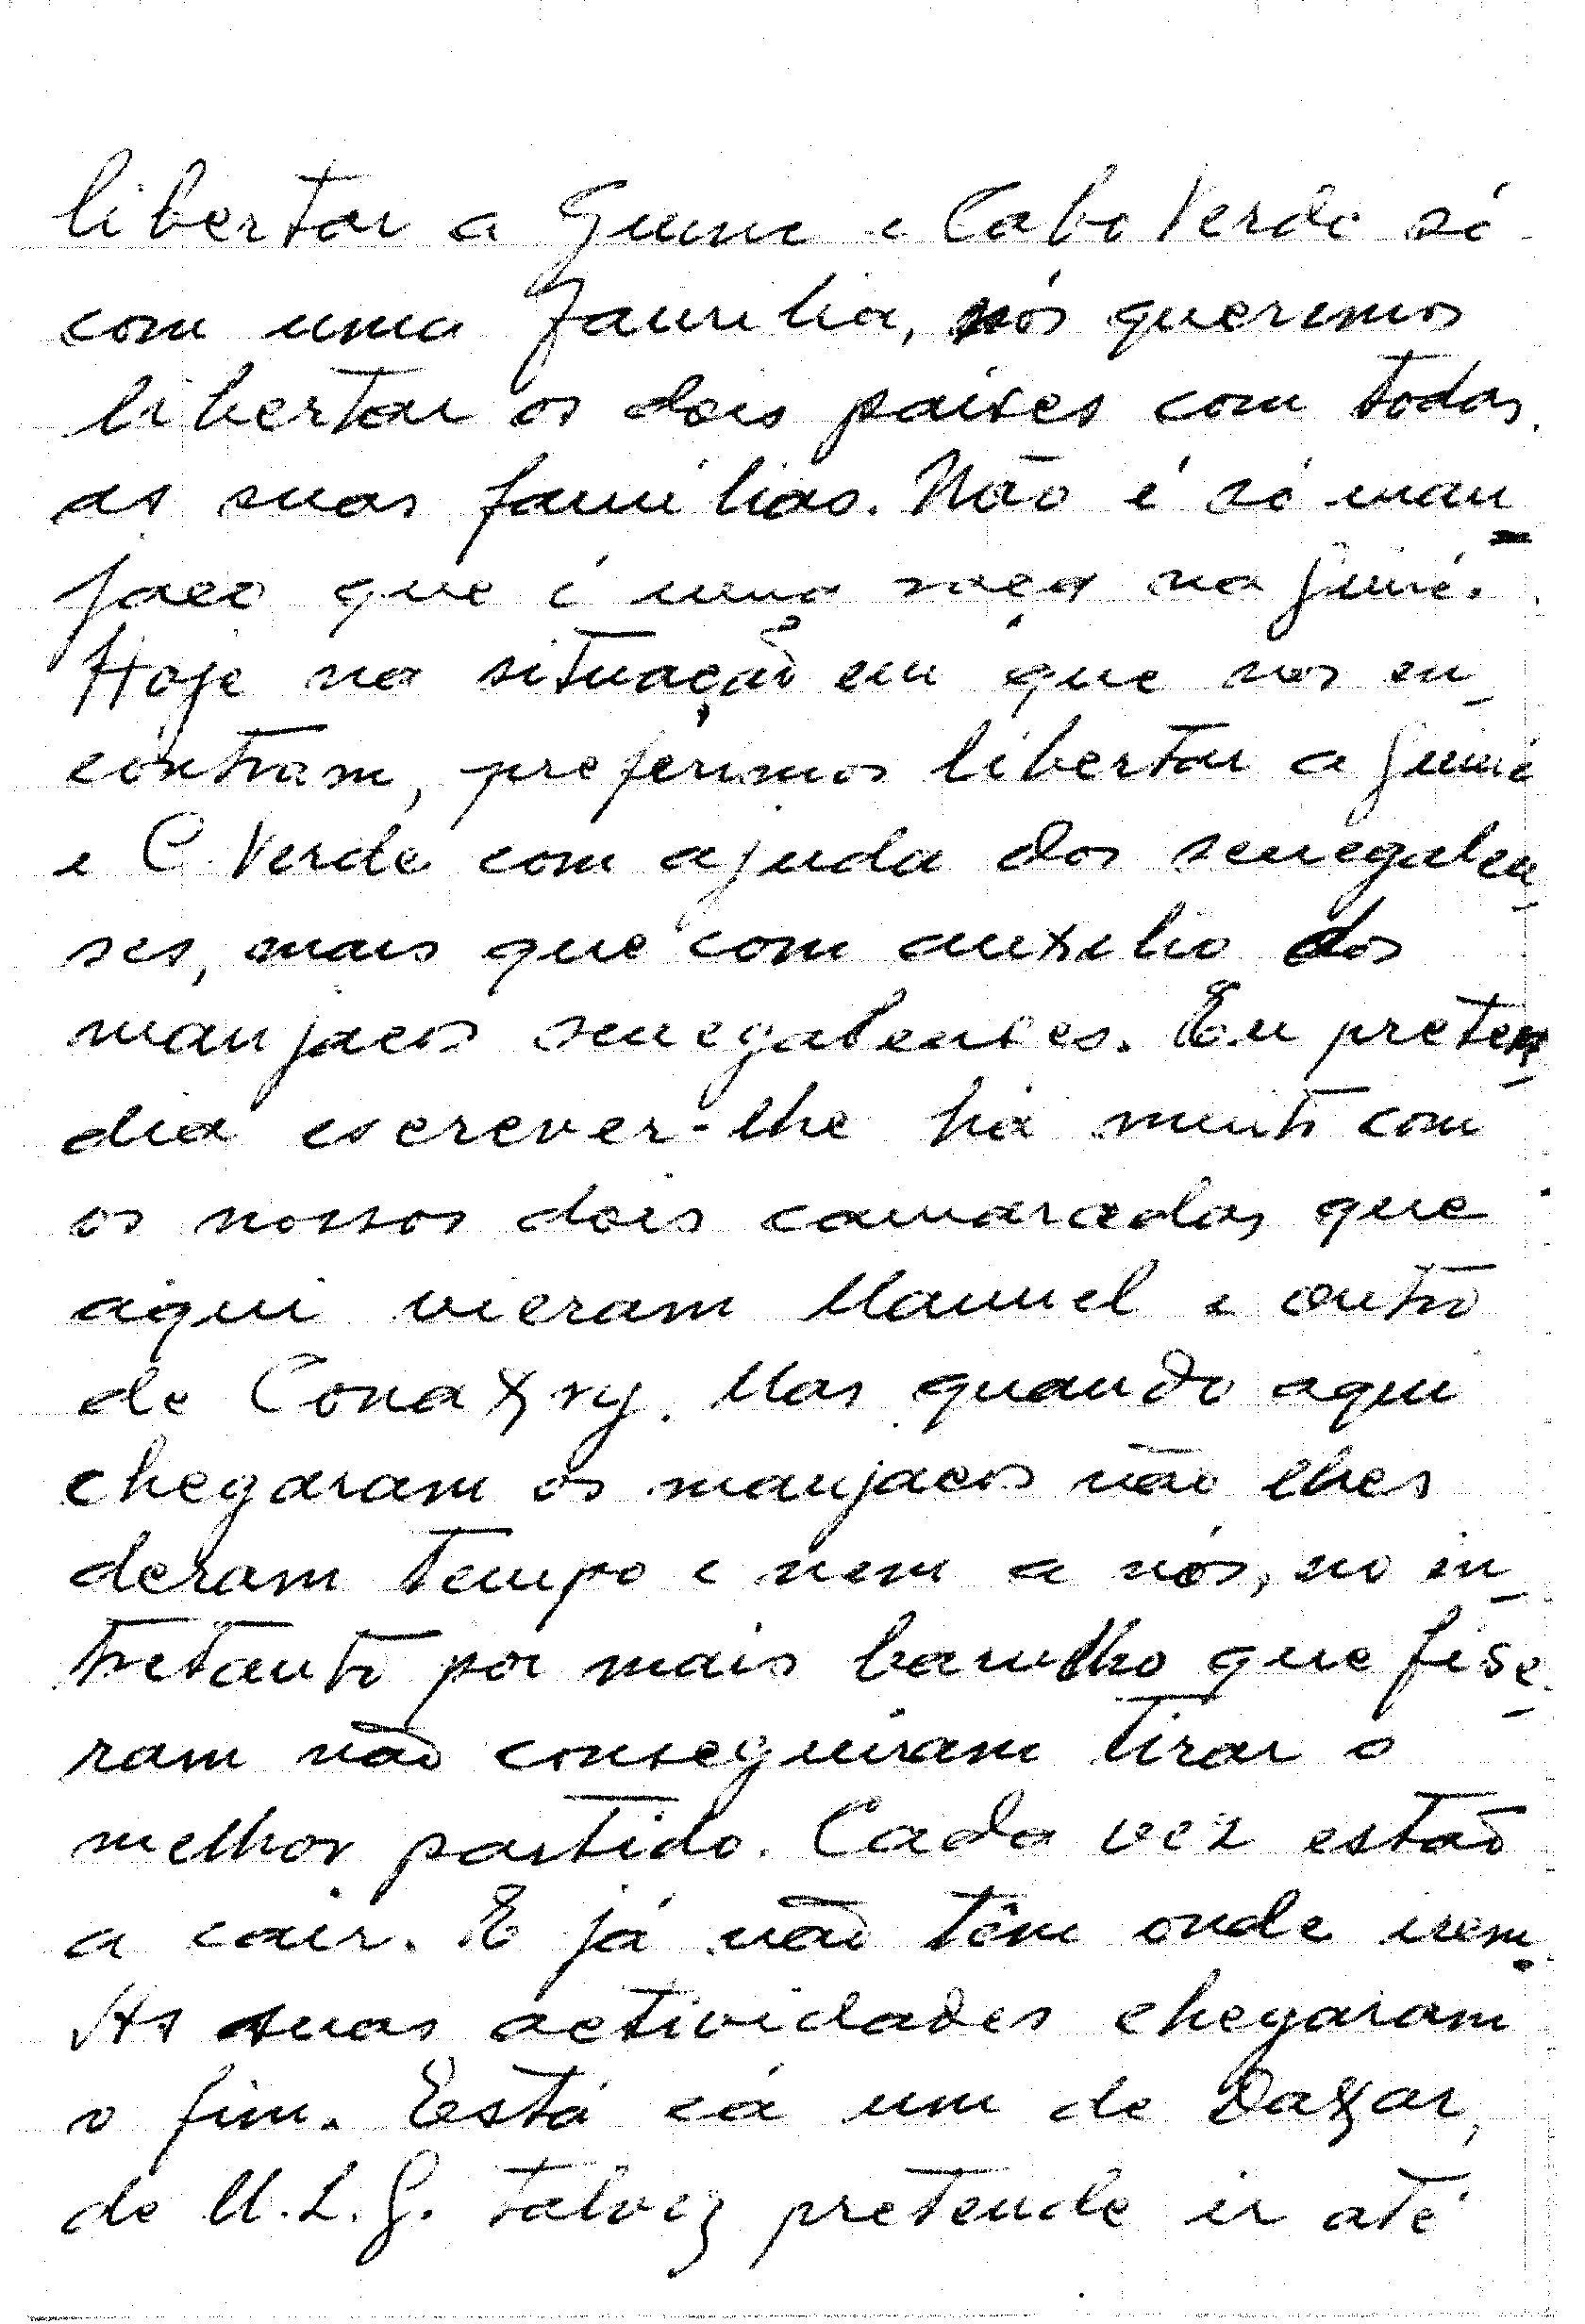 libertar a Guine e Cabo Verde só
com uma familia, nós queremos
libertar os dois paises com todas
as suas familias. Não é só man-
jaco que é uma raça na Guiné.
Hoje na situação em que nos en-
contram, preferimos libertar a Guiné
e C. Verde com ajuda dos senegalen-
ses, mais que com auxilio dos
manjacos senegalenses. Eu preten-
dia escrever-lhe há muito com
os nossos dois camaradas que
aqui vieram Manuel e outro
de Conakry. Mas quando aqui
chegaram os manjacos não lhes
deram tempo e nem a nós, no en-
tretanto por mais barulho que fise-
ram não conseguiram tirar o
melhor partido. Cada vez estão
a cair. E já não têm onde irem.
As suas actividades chegaram
o fim. Está cá um de Dakar,
de M.L.G. talvez pretende ir até